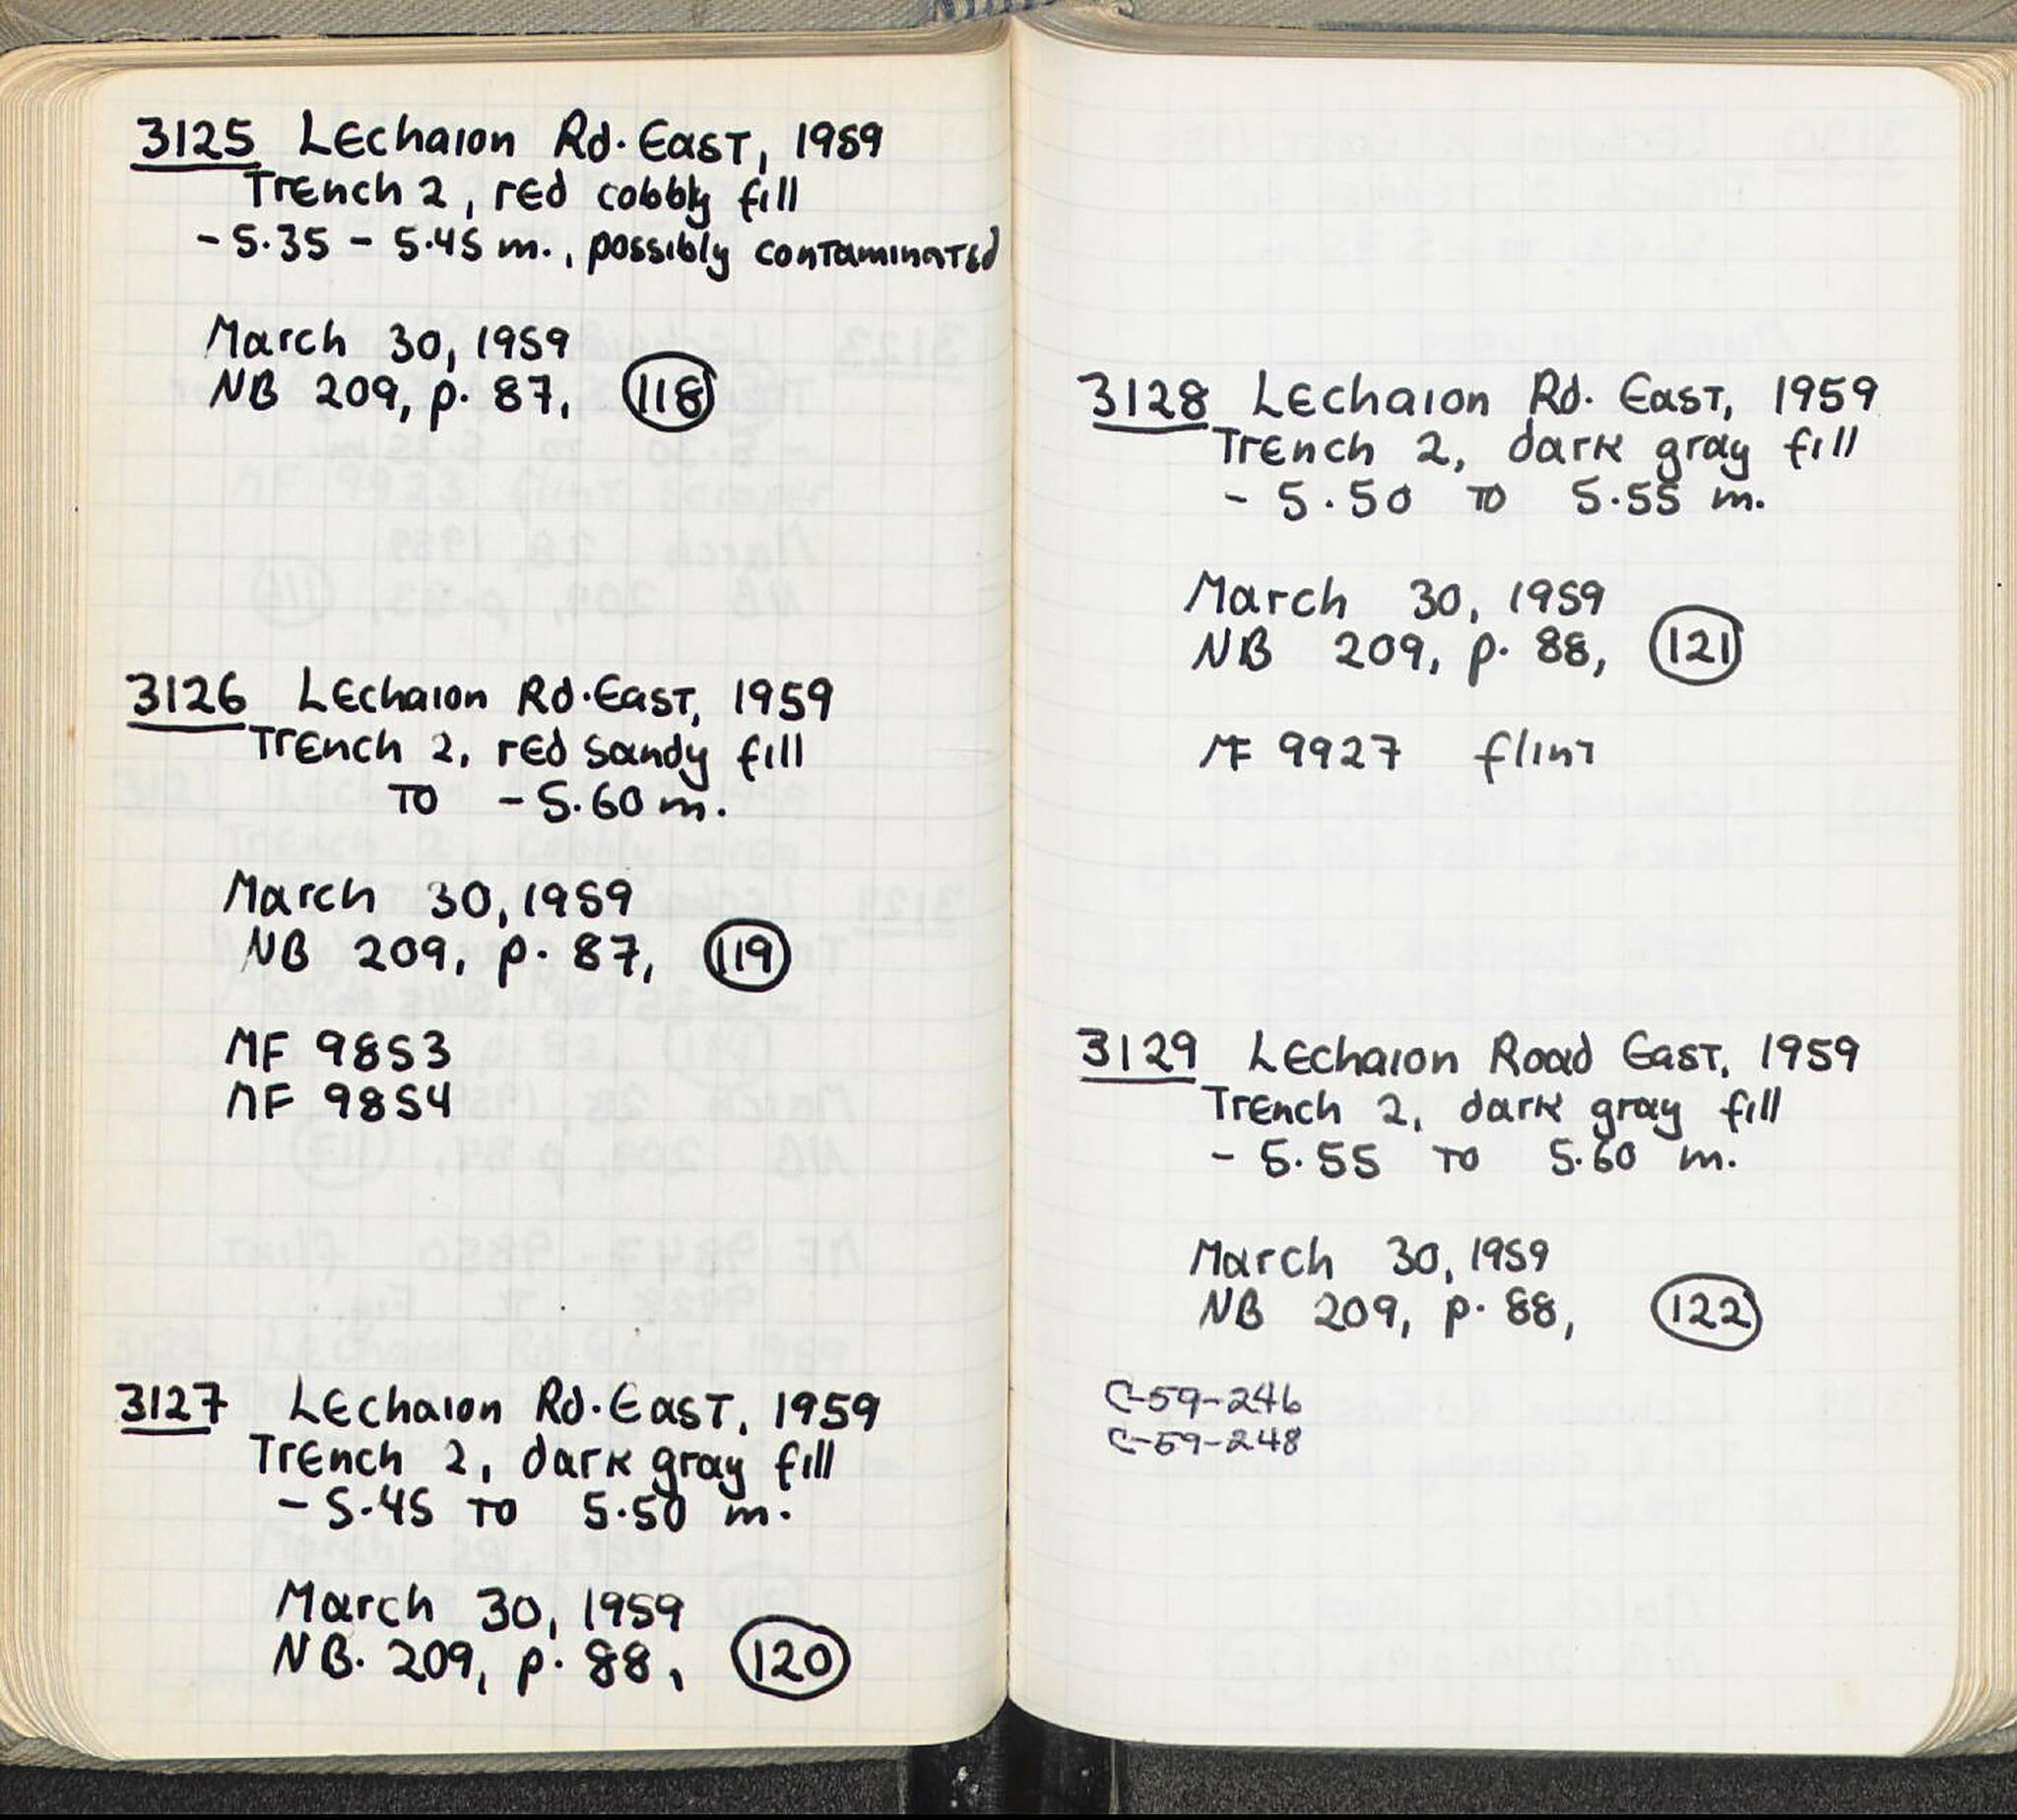 3125 Lechaion Rd. East, 1959
Trench 2, red cobbly fill
- 5.35 - 5.45 m., possibly contaminated
March 30, 1959
NB 209, p. 87, 118
3126 Lechaion Rd. East, 1959
Trench 2, red sandy fill
to - 5.60 m.
March 30, 1959
NB 209, p. 87, 119
MF 9853
MF 9854
3127 Lechaion Rd. East, 1959
Trench 2, dark gray fill
- 5.45 to 5.50 m.
March 30, 1959
NB. 209, p. 88, 120
3128 Lechaion Rd. East, 1959
Trench 2, dark gray fill
- 5.50 to 5.55 m.
March 30, 1959
NB 209, p. 88, 121
MF 9927 flint
3129 Lechaion Road East, 1959
Trench 2, dark gray fill
- 5.55 to 5.60 m.
March 30, 1959
NB 209, p. 88, 122
C-59-246
C-59-248